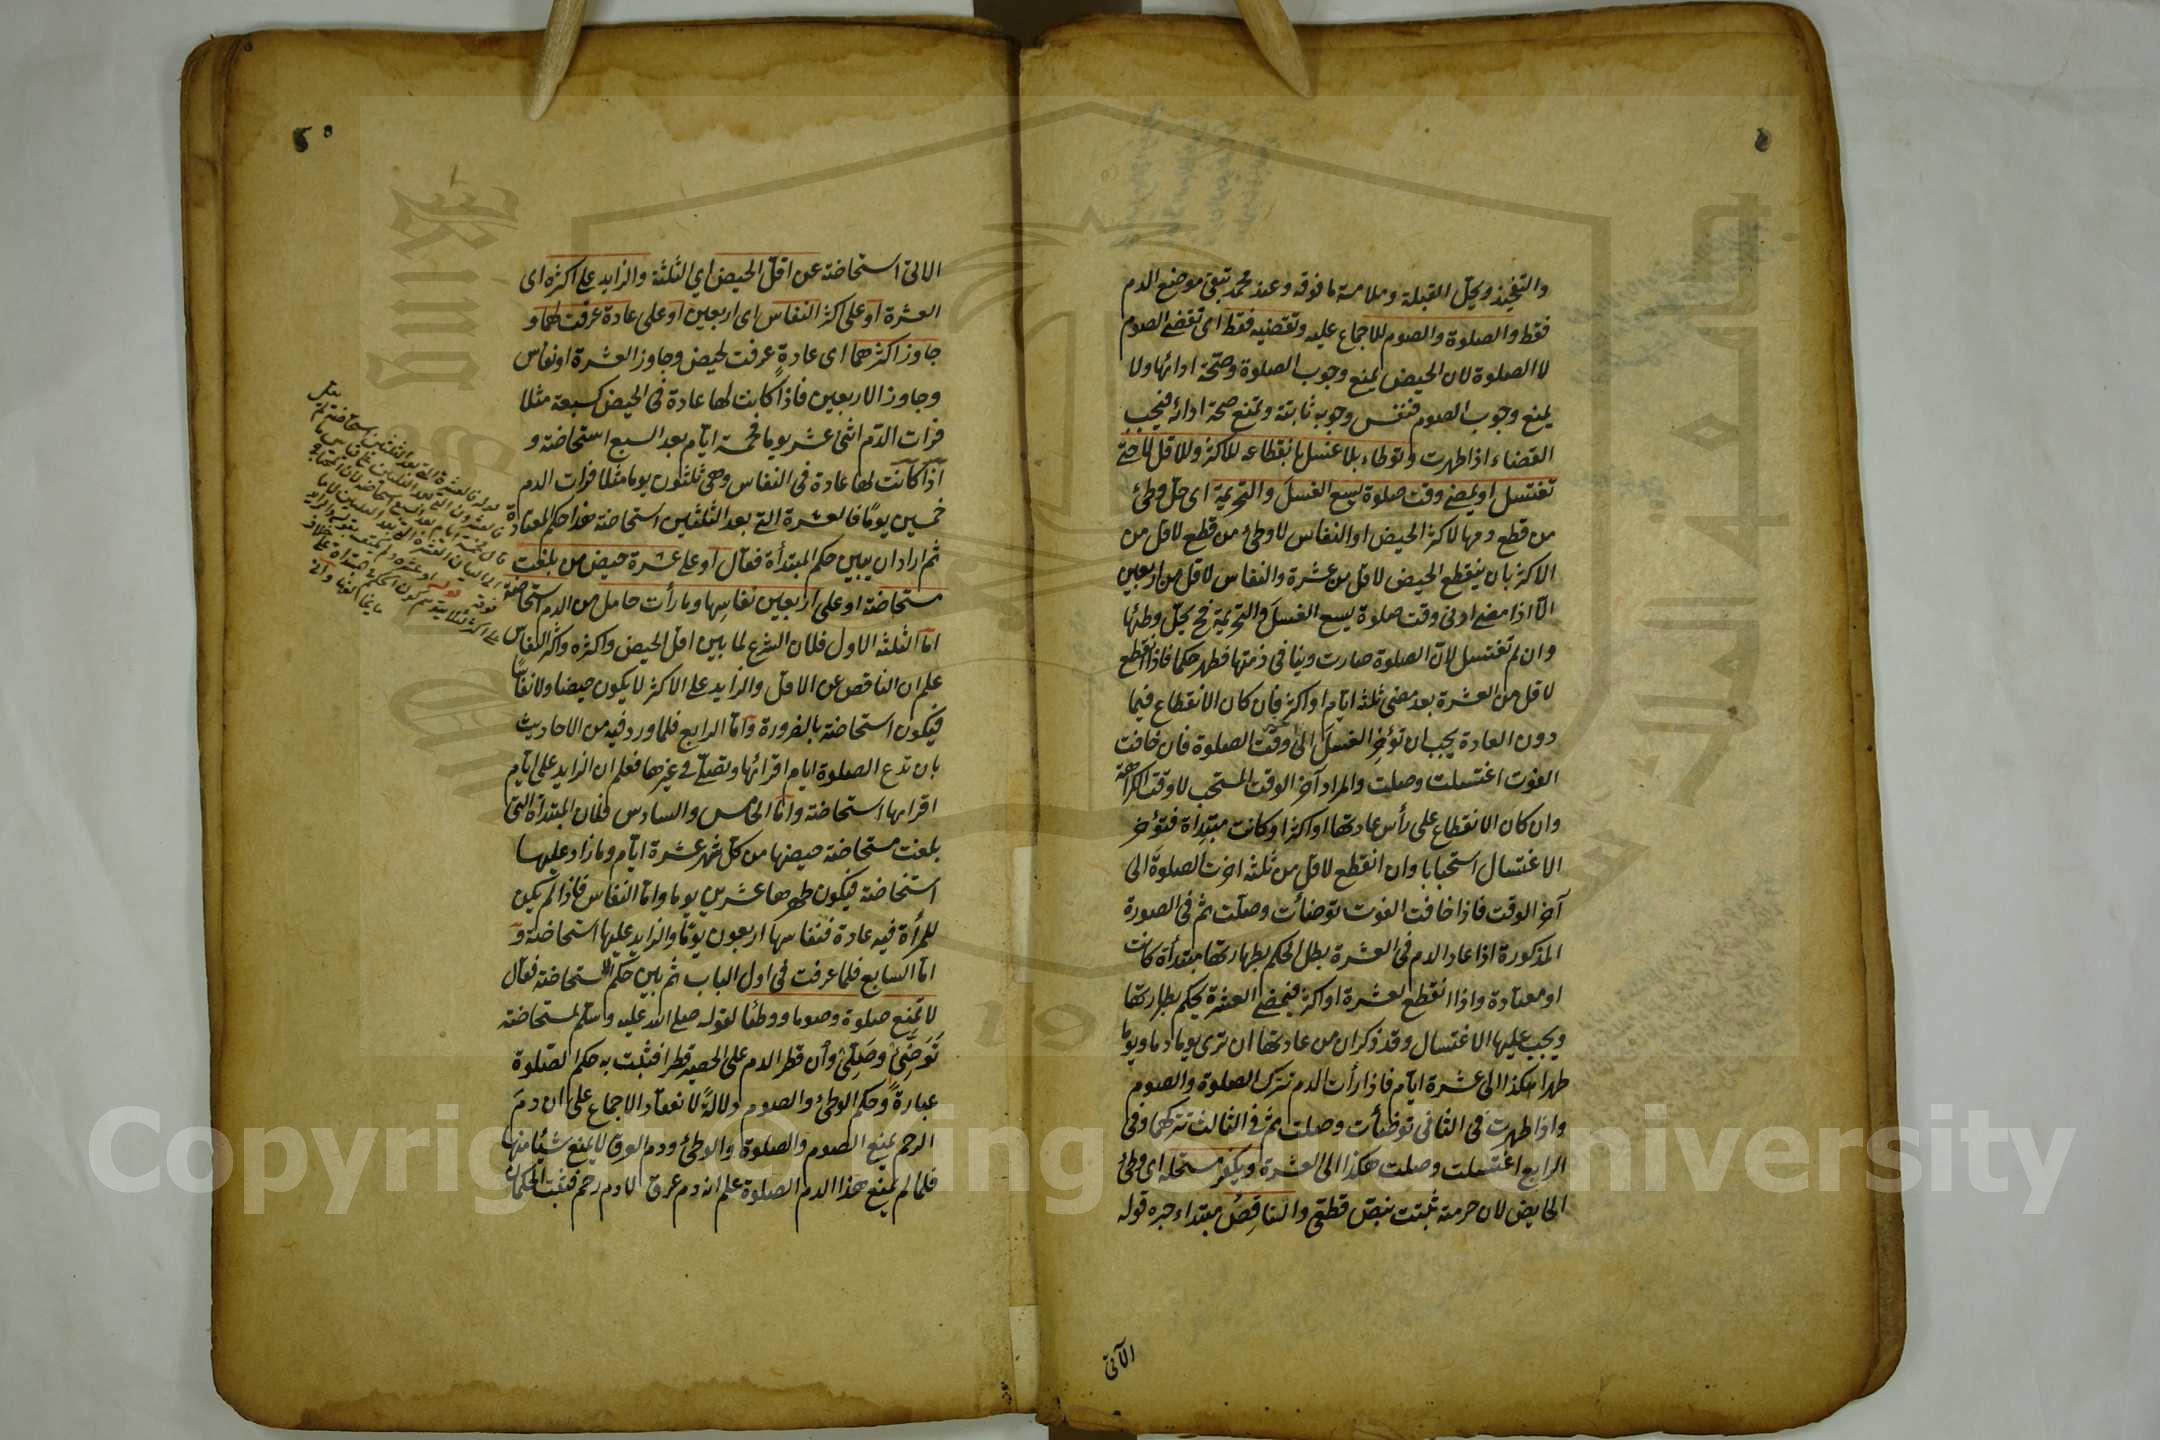 والتفخيذ ويحل القبلة وملامسة ما فوقه وعند محمد تبقى موضع الدم
فقط والصلوة والصوم للاجماع عليه وتقضيه فقط اى تقضے الصوم
لا الصلوة لان الحيض يمنع وجوب الصلوة وصحة ادائها ولا
يمنع وجوب الصوم فنفس وجوبه ثابتة وتمنع صحة ادائه فيجب
القضاء اذا طهرت وتوطاء بلا غسل بانقطاعه للاكثر وللاقل لا حتے
تغتسل او يمضے وقت صلوة يسع الغسل والتحريمة اى حل وطئ
من قطع دمها لاكثر الحيض او النفاس لا وطئ من قطع لاقل من
الاكثر بان ينقطع الحيض لاقل من عشرة والنفاس لاقل من اربعين
الا اذا مضے ادنى وقت صلوة يسع الغسل والتحريمة فح يحل وطئها
وان لم تغتسل لان الصلوة صارت دينا فى ذمتها فطهر حكما فاذا انقطع
لاقل من العشرة بعد مضى ثلثة ايام او اكثر فان كان الانقطاع فيما
دون العادة يجب ان تؤخر الغسل الى وقت الصلوة فان خافت
الفوت اغتسلت وصلت والمراد آخر الوقت المستحب لا وقت الكراهة
وان كان الانقطاع على رأس عادتها او اكثر او كانت مبتدأة فتؤخر
الاغتسال استحبابا وان انقطع لاقل من ثلثة اخرت الصلوة الى
آخر الوقت فاذا خافت الفوت توضأت وصلت ثم فى الصورة
المذكورة اذا عاد الدم فى العشرة بطل الحكم بطهارتها مبتدأة كانت
او معتادة واذا انقطع لعشرة او اكثر فبمضے العشرة يحكم بطهارتها
ويجب عليها الاغتسال وقد ذكر ان من عادتها ان ترى يوما دما ويوما
طهرا هكذا الى عشرة ايام فاذا رأت الدم تترك الصلوة والصوم
واذا طهرت فى الثانى توضأت وصلت ثم فى الثالث تتركهما وفى
الرابع اغتسلت وصلت هكذا الى العشرة ويكفر مستحله اى وطئ
الحايض لان حرمته ثبتت بنص قطعى والناقص مبتداء خبره قوله
الآتى
الاتى استحاضة عن اقل الحيض اي الثلثة والزايد على اكثره اى
العشرة او على اكثر النفاس اى اربعين او على عادة عرفت لهما و
جاوز اكثرهما اى عادة عرفت لحيض وجاوز العشرة او نفاس
وجاوز الاربعين فاذا كانت لها عادة فى الحيض كسبعة مثلا
فرات الدم اثنى عشر يوما فخمسة ايام بعد السبع استحاضة و
اذا كانت لها عادة فى النفاس وهى ثلثون يوما مثلا فرات الدم
خمسين يوما فالعشرة التے بعد الثلثين استحاضة هذا حكم المعتادة
ثم اراد ان يبين حكم المبتدأة فقال او على عشرة حيض من بلغت
مستحاضة او على اربعين نفاسها وما رأت حامل من الدم استحاضة
اما الثلثة الاول فلان الشرع لما بين اقل الحيض واكثره واكثر النفاس
علم ان الناقص عن الاقل والزايد على الاكثر لا يكون حيضا ولا نفاسا
فيكون استحاضة بالضرورة واما الرابع فلما ورد فيه من الاحاديث
بان تدع الصلوة ايام اقرائها وتصلى فى غيرها فعلم ان الزايد على ايام
اقرائها استحاضة واما الخامس والسادس فلان المبتدأة التى
بلغت مستحاضة حيضها من كل شهر عشرة ايام وما زاد عليها
استحاضة فيكون طهرها عشرين يوما واما النفاس فاذا لم يكن
للمرأة فيه عادة فنفاسها اربعون يوما والزايد عليها استحاضة و
اما السابع فلما عرفت فى اول الباب ثم بين حكم الاستحاضة فقال
لا تمنع صلوة وصوما ووطئا لقوله صلى الله عليه وسلم لمستحاضة
توضئ وصلئ وان قطر الدم على الحصير قطرا فثبت به حكم الصلوة
عبارة وحكم الوطئ والصوم دلالة لانعقاد الاجماع على ان دم
الرحم يمنع الصوم والصلوة والوطئ ودم العرق لا يمنع شيئا منها
فلما لم يمنع هذا الدم الصلوة علم انه دم عرق لا دم رحم فثبت الحكمان